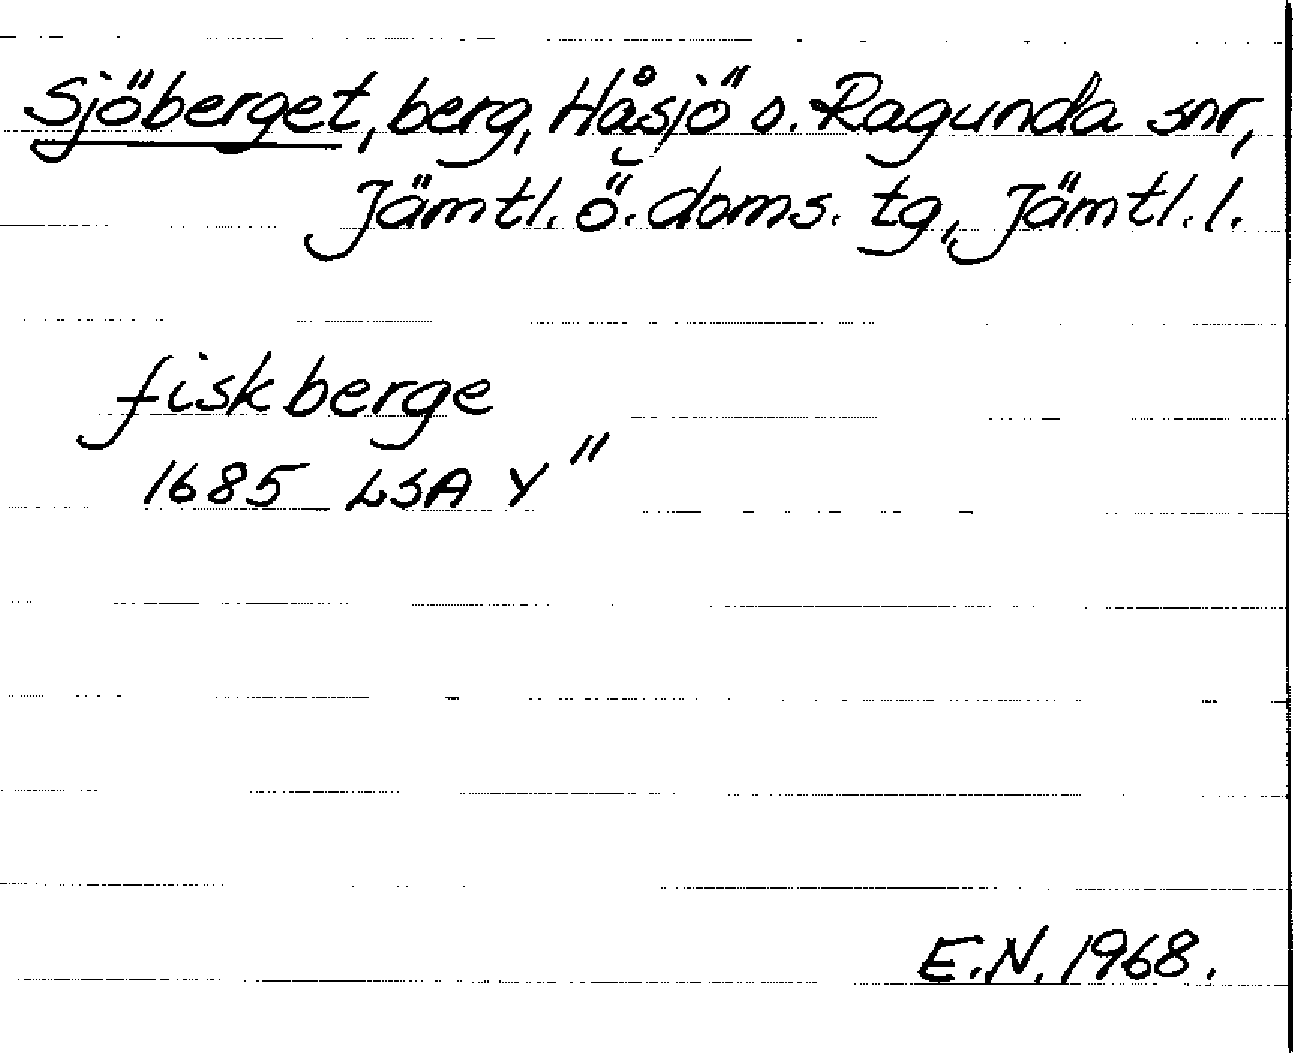 Sjöberget, berg, Håsjö o. Ragunda snr,
Jämtl. ö. doms. tg, Jämtl. l.
fiskberge
1685 LSA Y"
E.N. 1968.